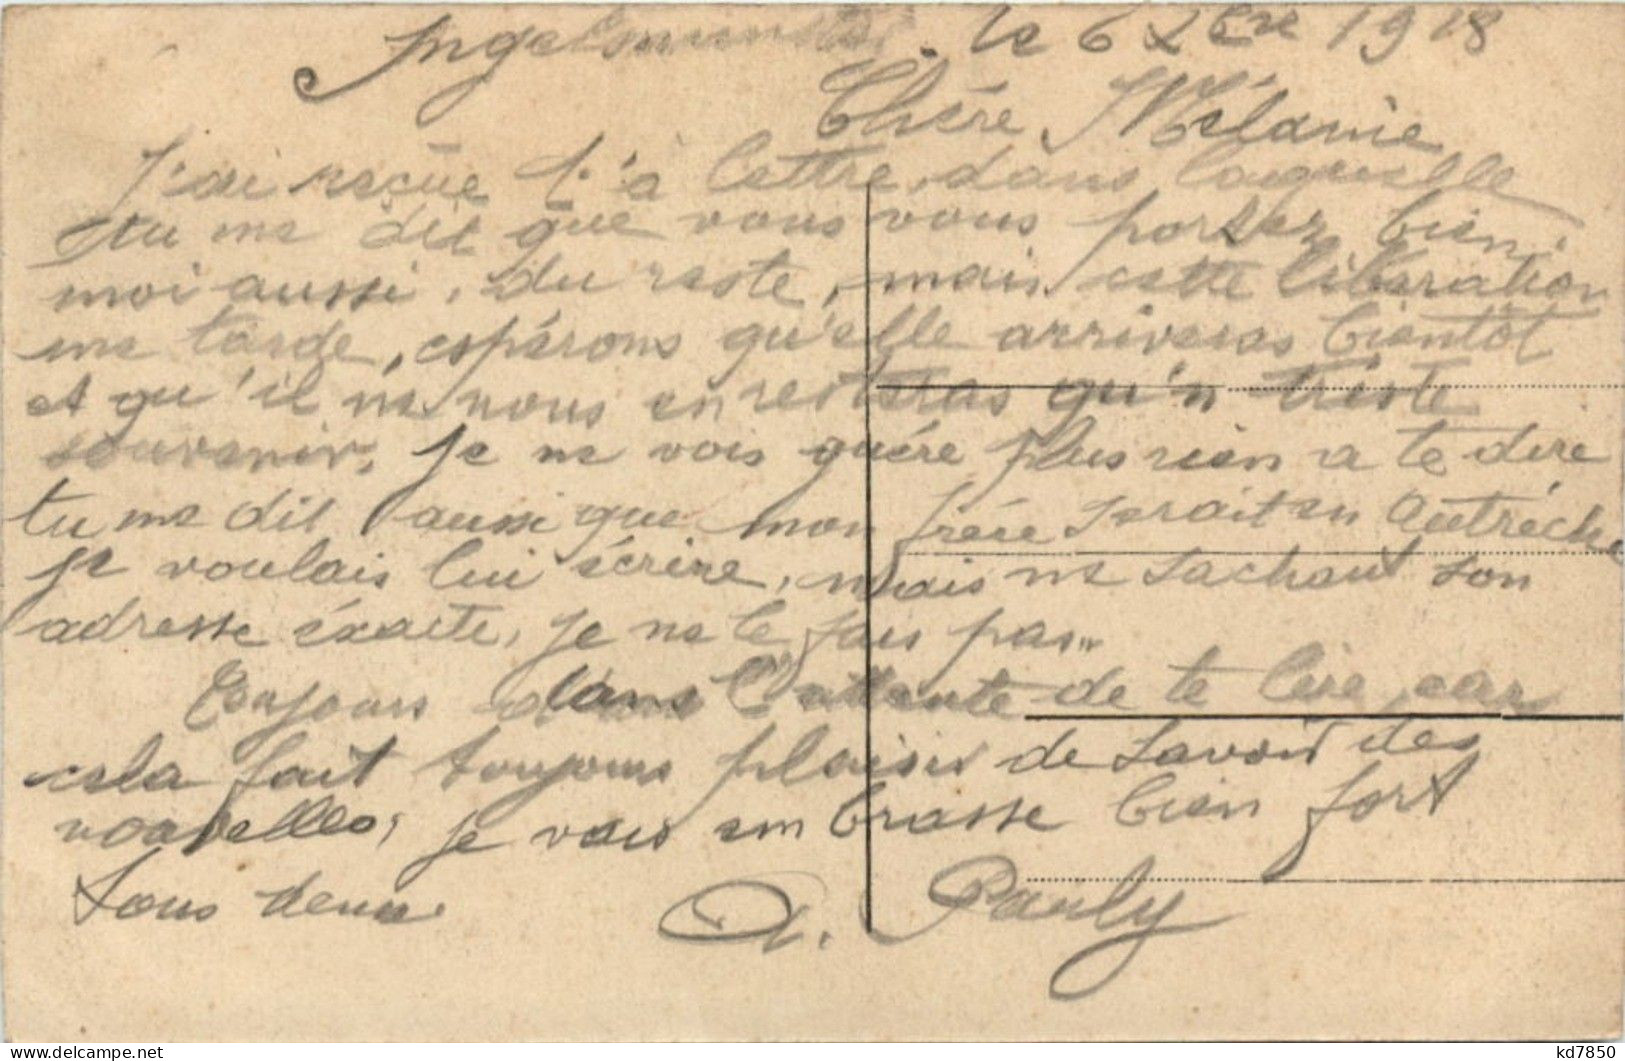 Ingelmunster. le 6 Xbre 1918
Chére Mélanie
J'ai reçue t'a lettre, dans laquelle
tu me dit que vous vous portez bien,
moi aussi, du reste, mais cette libération
me tarde, espérons qu'elle arriveras bientôt
et qu'il ne nous en resteras qu'n triste
souvenir, je ne vois guére plus rien a te dire
tu me dit aussi que mon frére serait en Autriche
je voulais lui écrire, mais ne sachant son
adresse éxacte, je ne le fais pas..
Toujours dans l'attente de te lire, car
cela fait toujours plaisir de savoir des
nouvelles, je vais embrasse bien fort
tous deux.
A. Pauly
kd7850